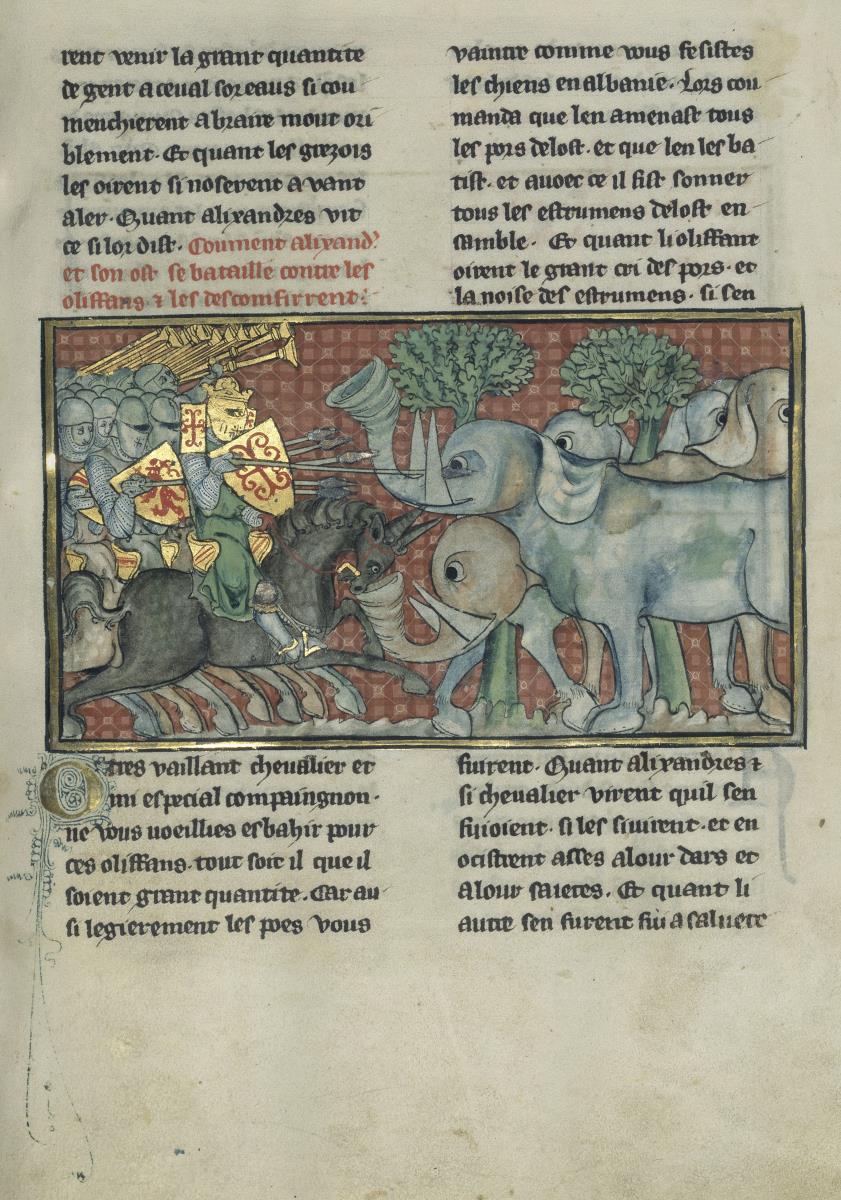 rent venir la grant quantite
de gent a ceual sor eaus si cou
menchierent a braire mout ori
blement. Et quant les grezois
les oirent si noserent avant
aler. Quant alixandres vit
ce si lor dist. Coument alixand'
et son ost se bataille contre les
oliffans ⁊ les descomfirrent:
O tres vaillant chevalier et
mi especial compaingnon.
ne vous voeillies esbahir pour
ces oliffans. tout soit il que il
soient grant quantite. Car au
si legierement les poes vous
vaintre comme vous fesistes
les chiens en albanie. Lors cou
manda que len amenast tous
les pors delost. et que len les ba
tist. et avoec ce il fist sonner
tous les estrumens delost en
samble. Et quant li oliffant
oirent le grant cri des pors. et
la noise des estrumens. si sen
fuirent. Quant alixandres ⁊
si chevalier virent quil sen
fuioient. si les sivirent. et en
ocistrent asses a lour dars et
a lour saietes. Et quant li
autre sen furent fui a salvete